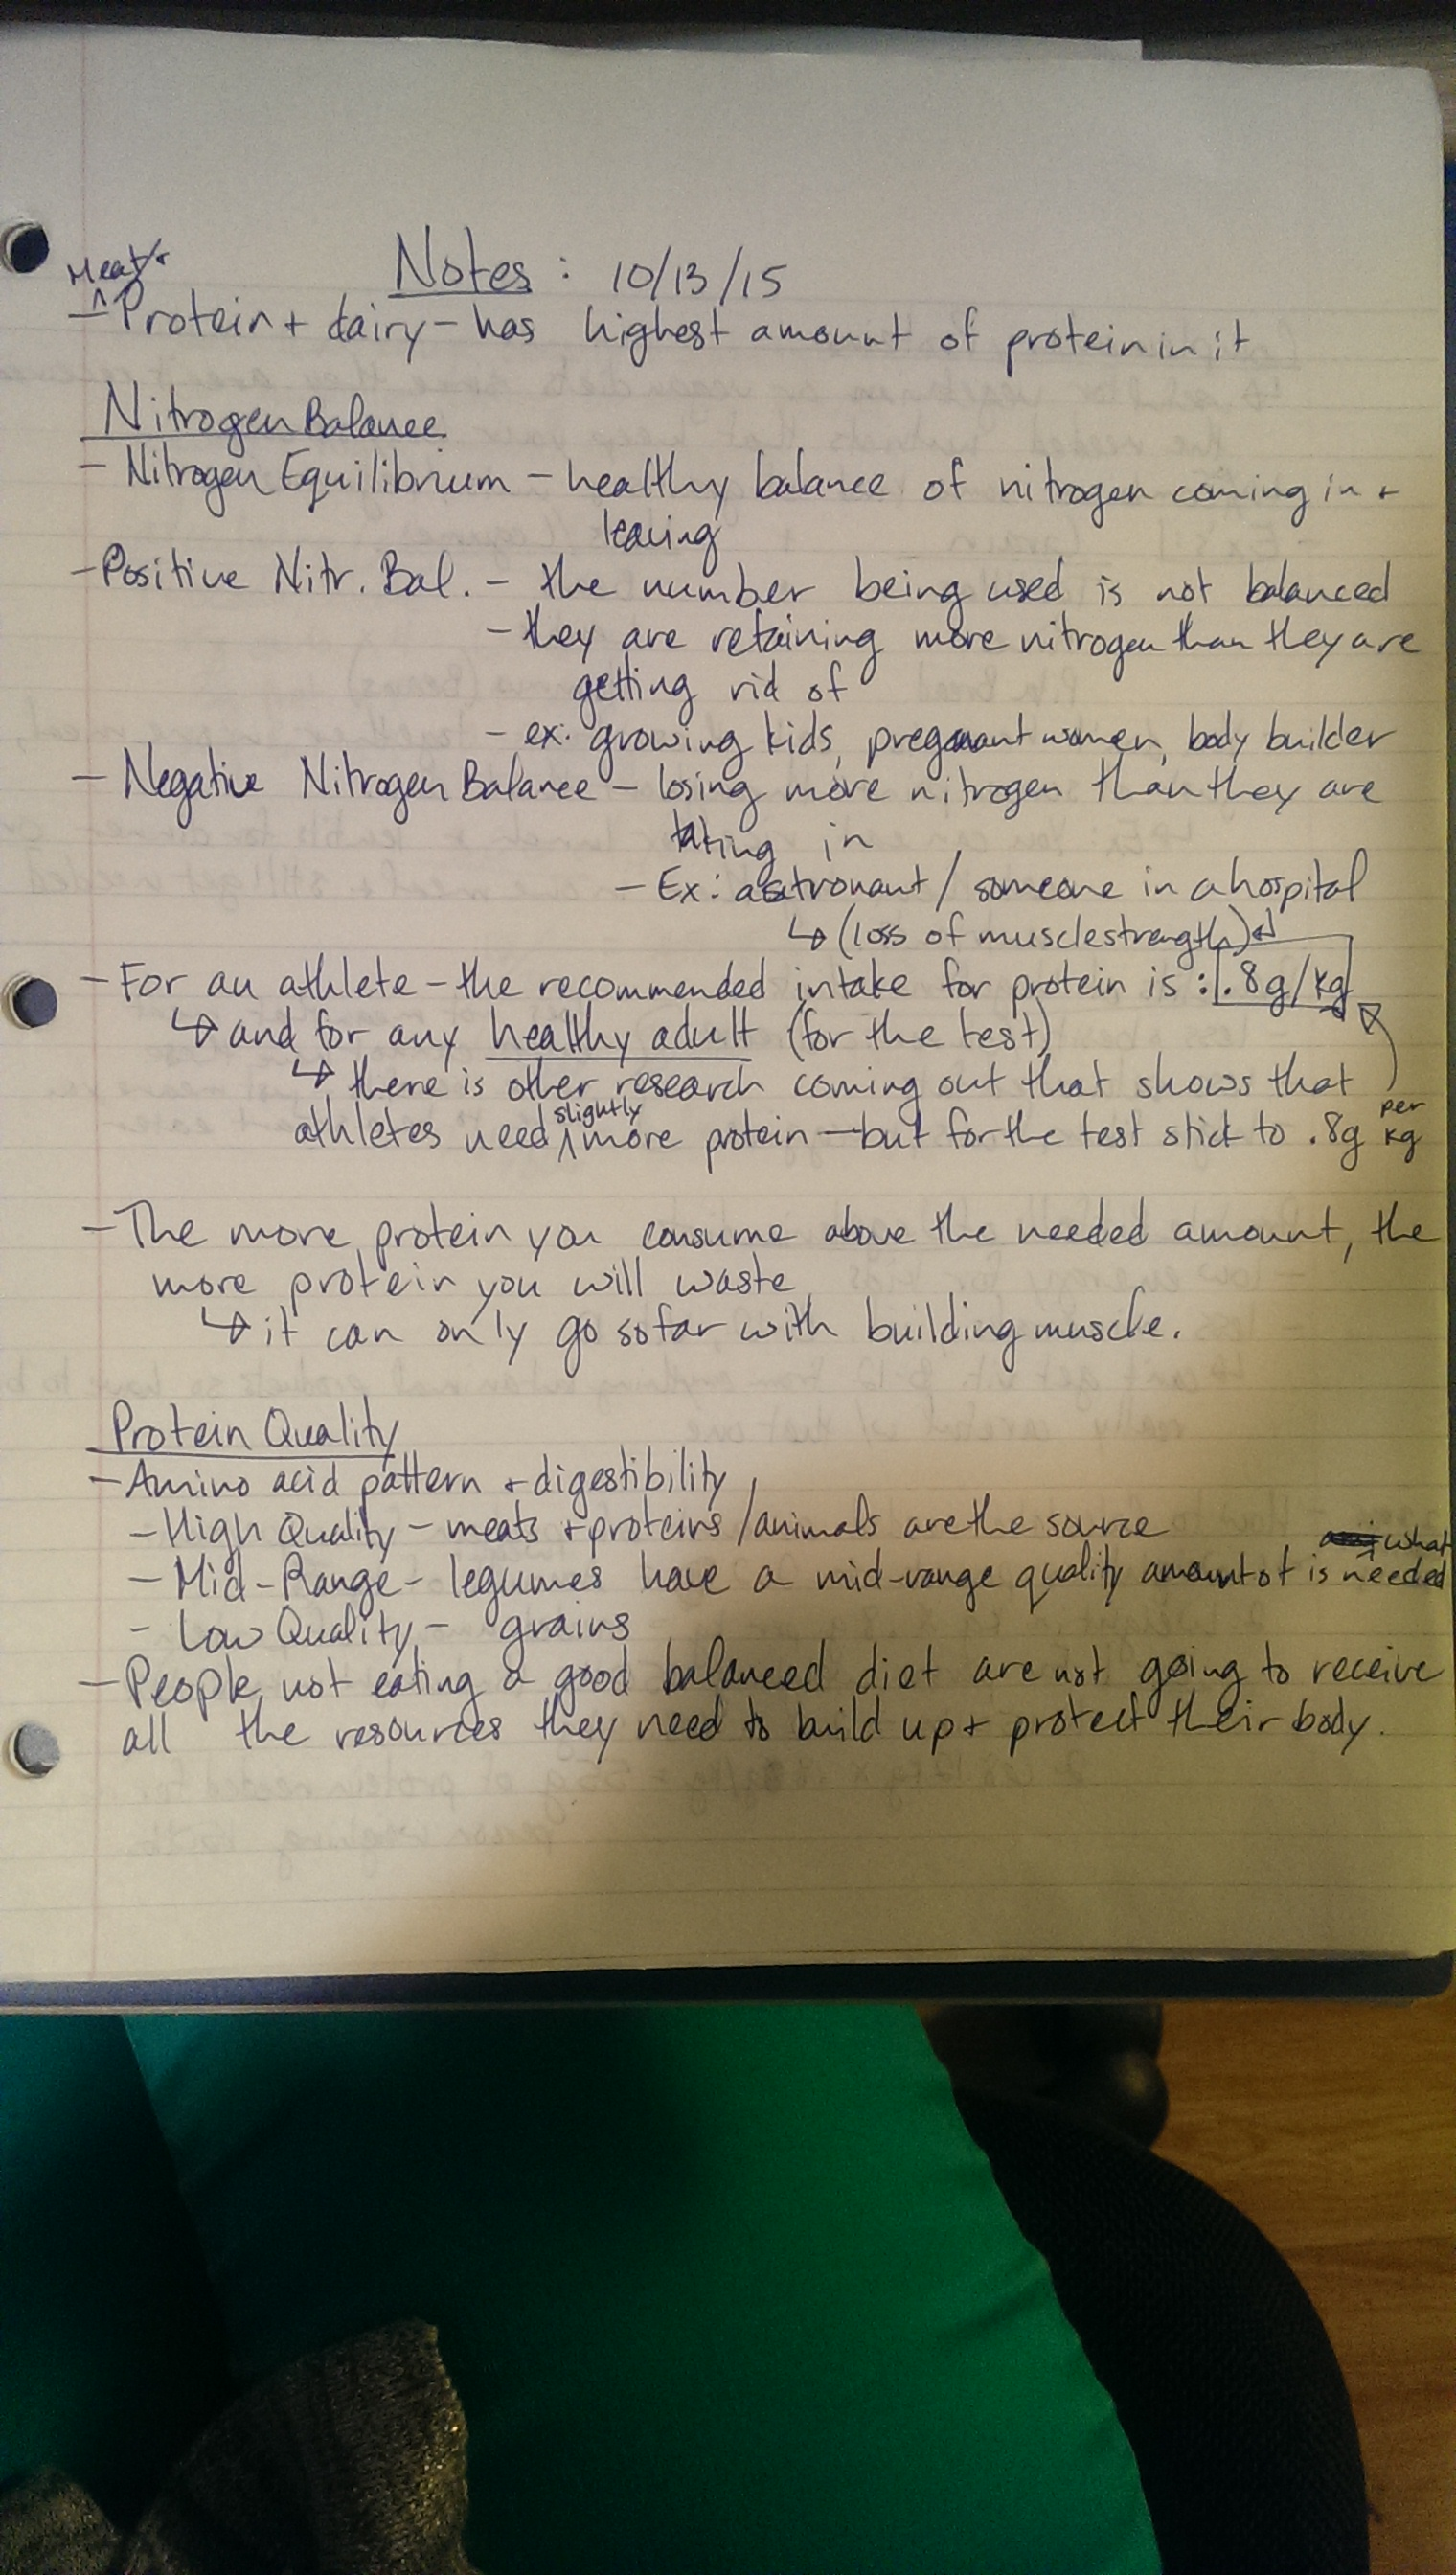 Notes: 10/13/15
Meat +
- Protein + dairy - has highest amount of protein in it
Nitrogen Balance
- Nitrogen Equilibrium - healthy balance of nitrogen coming in +
leaving
- Positive Nitr. Bal. - the number being used is not balanced
- they are retaining more nitrogen than they are
getting rid of
- ex: growing kids, pregnant women, body builder
- Negative Nitrogen Balance - losing more nitrogen than they are
taking in
- Ex: astronaut / someone in a hospital
↳ (loss of muscle strength) ↲
- For an athlete - the recommended intake for protein is : .8g/kg
↳ and for any healthy adult (for the test)
↳ there is other research coming out that shows that
athletes need slightly more protein - but for the test stick to .8g per kg
- The more protein you consume above the needed amount, the
more protein you will waste
↳ it can only go so far with building muscle.
Protein Quality
- Amino acid pattern + digestibility
- High Quality - meats + proteins / animals are the source
- Mid-Range - legumes have a mid-range quality amount of what is needed
- Low Quality - grains
- People not eating a good balanced diet are not going to receive
all the resources they need to build up + protect their body.